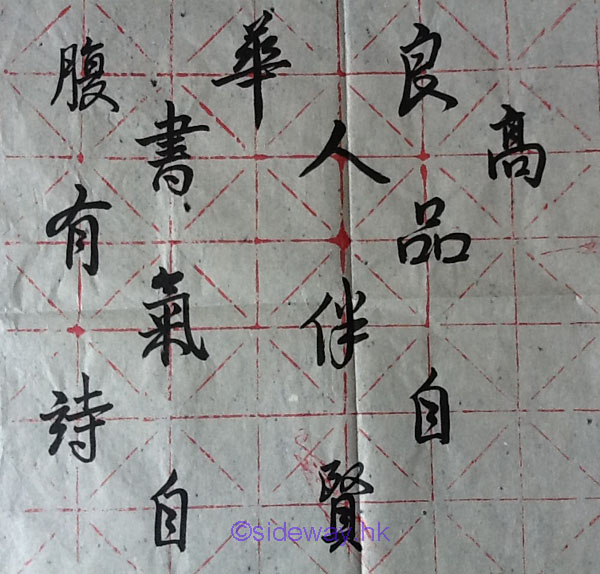 腹有詩
書氣自
華
人伴賢
良品自
高
©sideway.hk